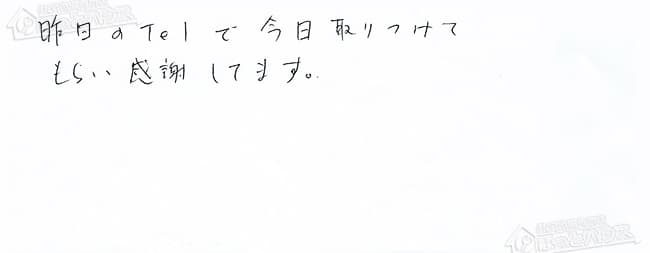 昨日のTelで今日取りつけて
もらい感謝してます。